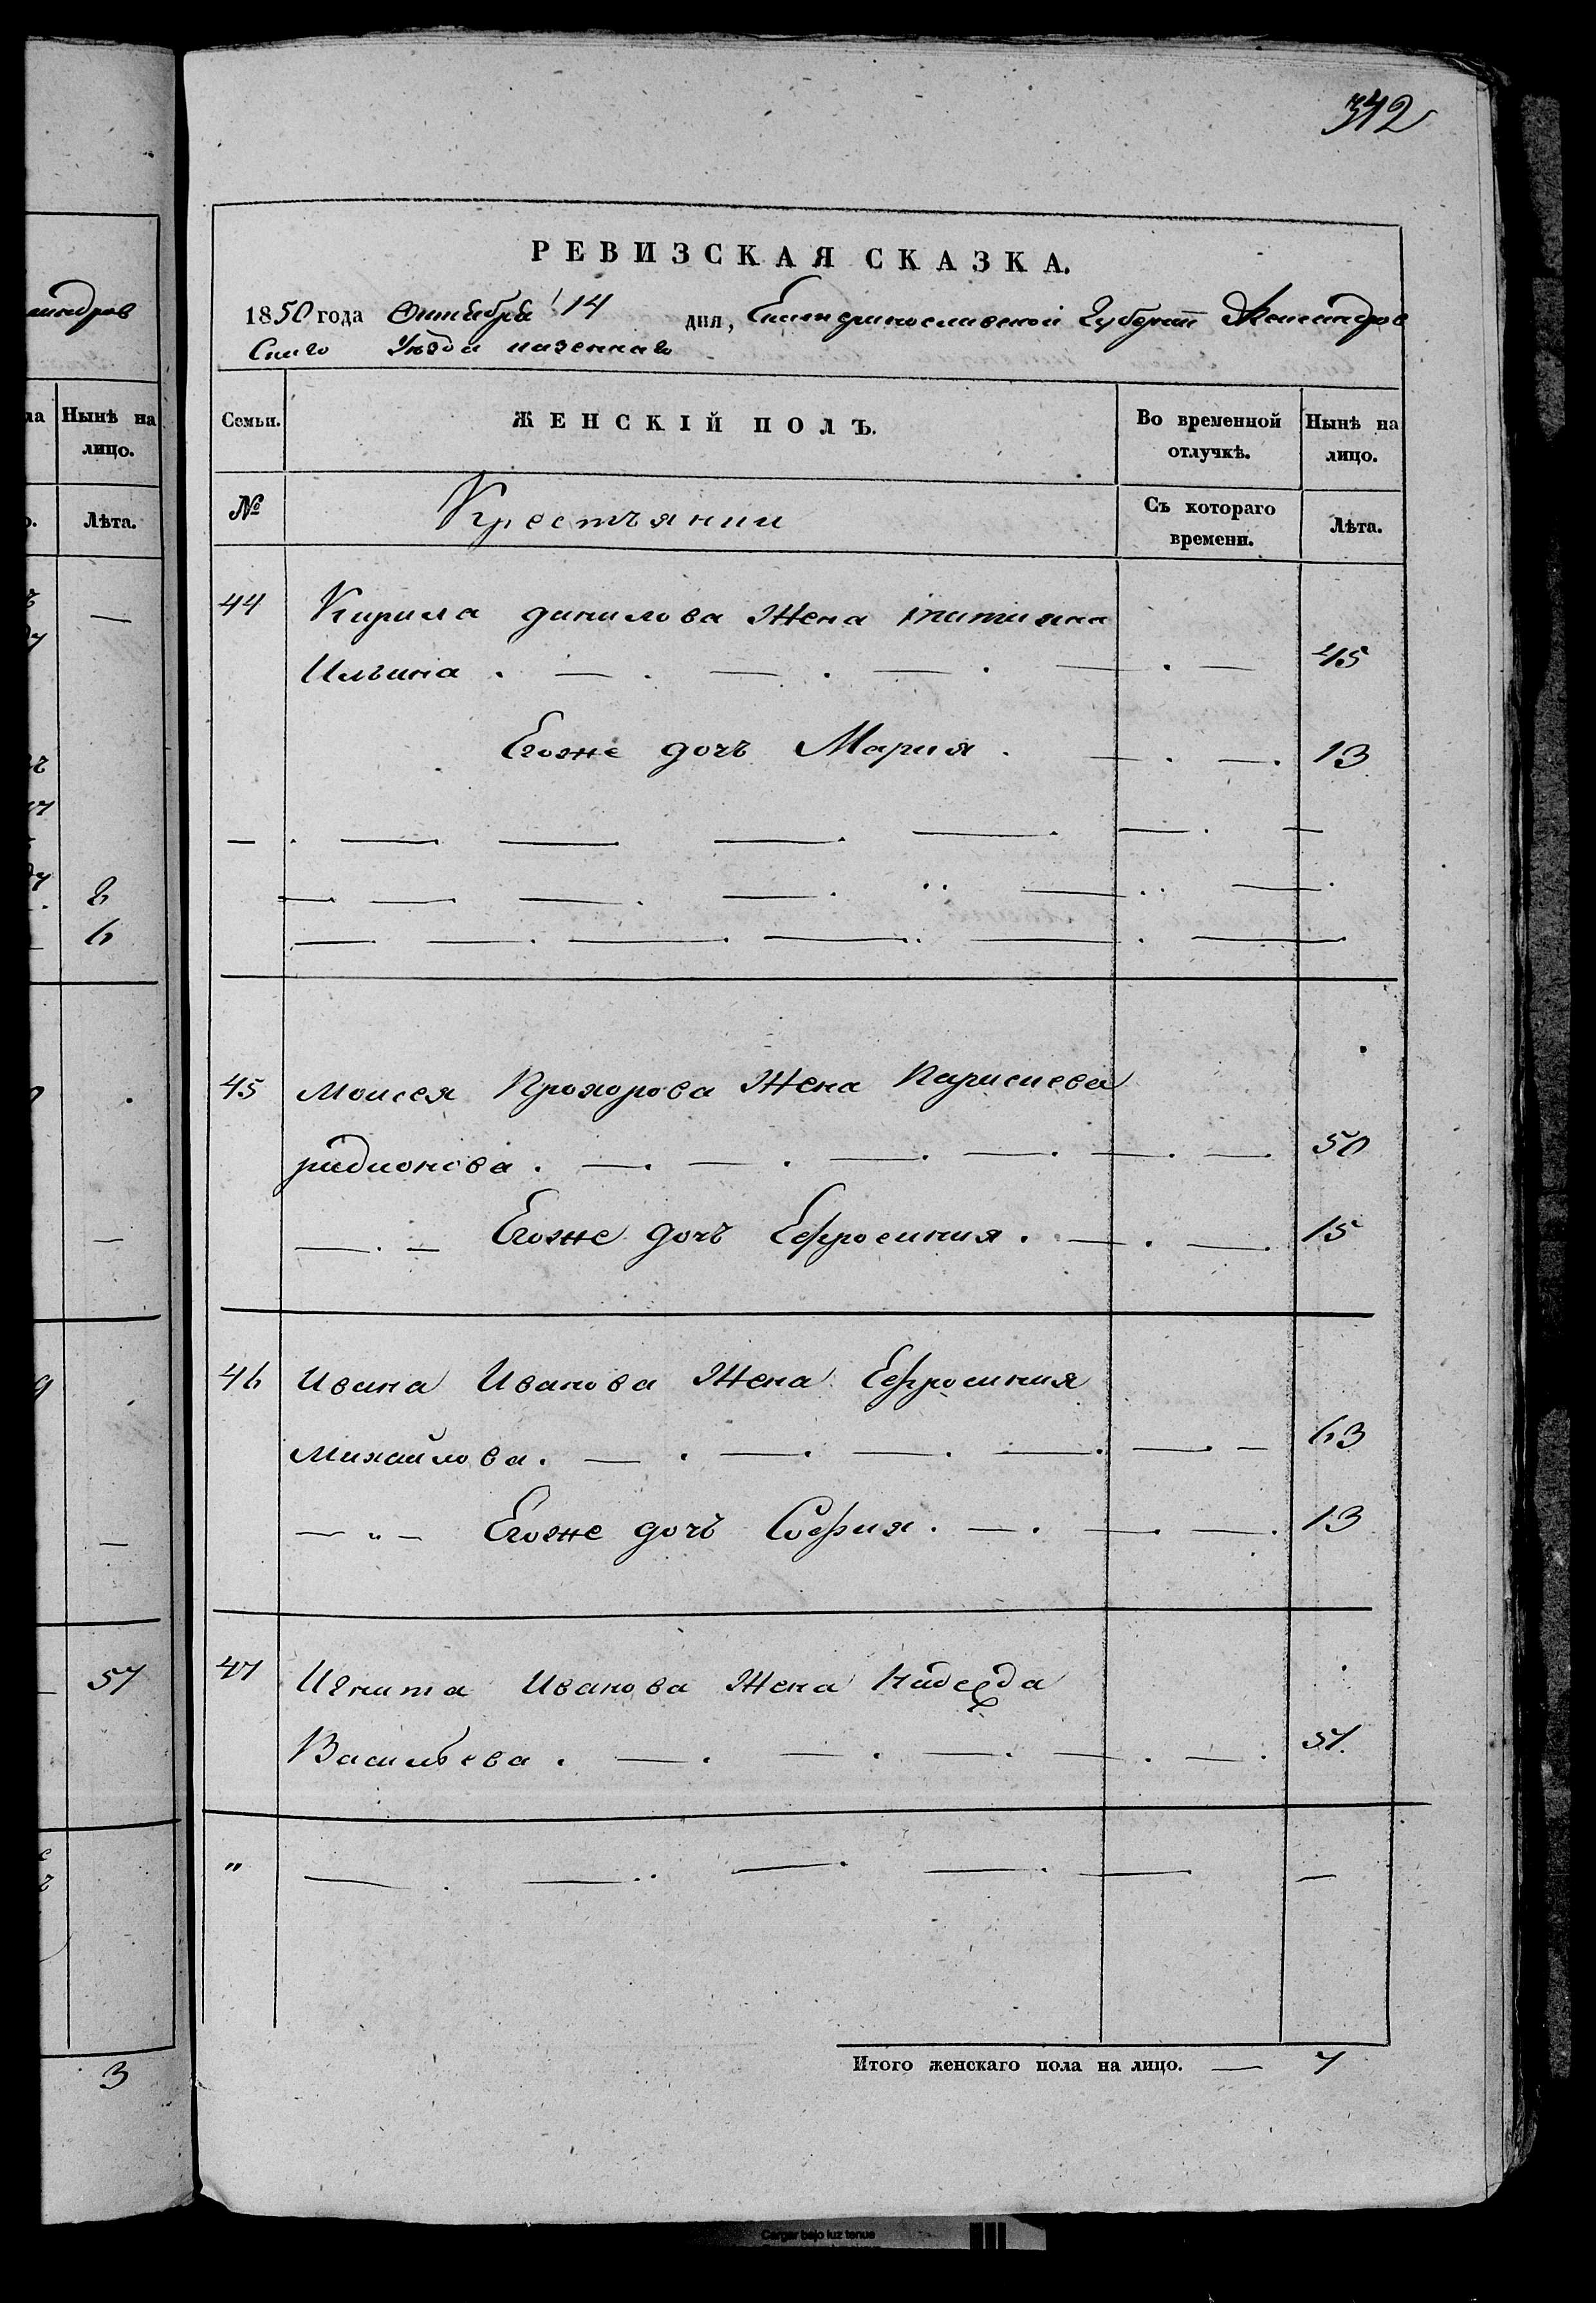 342
РЕВИЗСКАЯ СКАЗКА.
1850 года Октября 14 дня, Екатеринославской Губерніи Александров
скаго Уѣзда казеннаго
Семьи.
ЖЕНСКІЙ ПОЛЪ.
Во временной отлучкѣ.
Нынѣ на лицо.
№
Крестьянки
Съ котораго времени.
Лѣта.
44 Кирила данилова Жена
Ильина 45
Егоже дочь Мария 13
45 Моисея Прохорова Жена
радионова 50
Егоже дочь Ефросиния 15
46 Ивана Иванова Жена Ефросиния
Михайлова 63
Егоже дочь София 13
47 Игната Иванова Жена Надежда
Васильева 57
Итого женскаго пола на лицо. — 7
андров
ла
Нынѣ на
лицо.
Лѣта.
2
6
57
3
Cargar bajo luz tenue